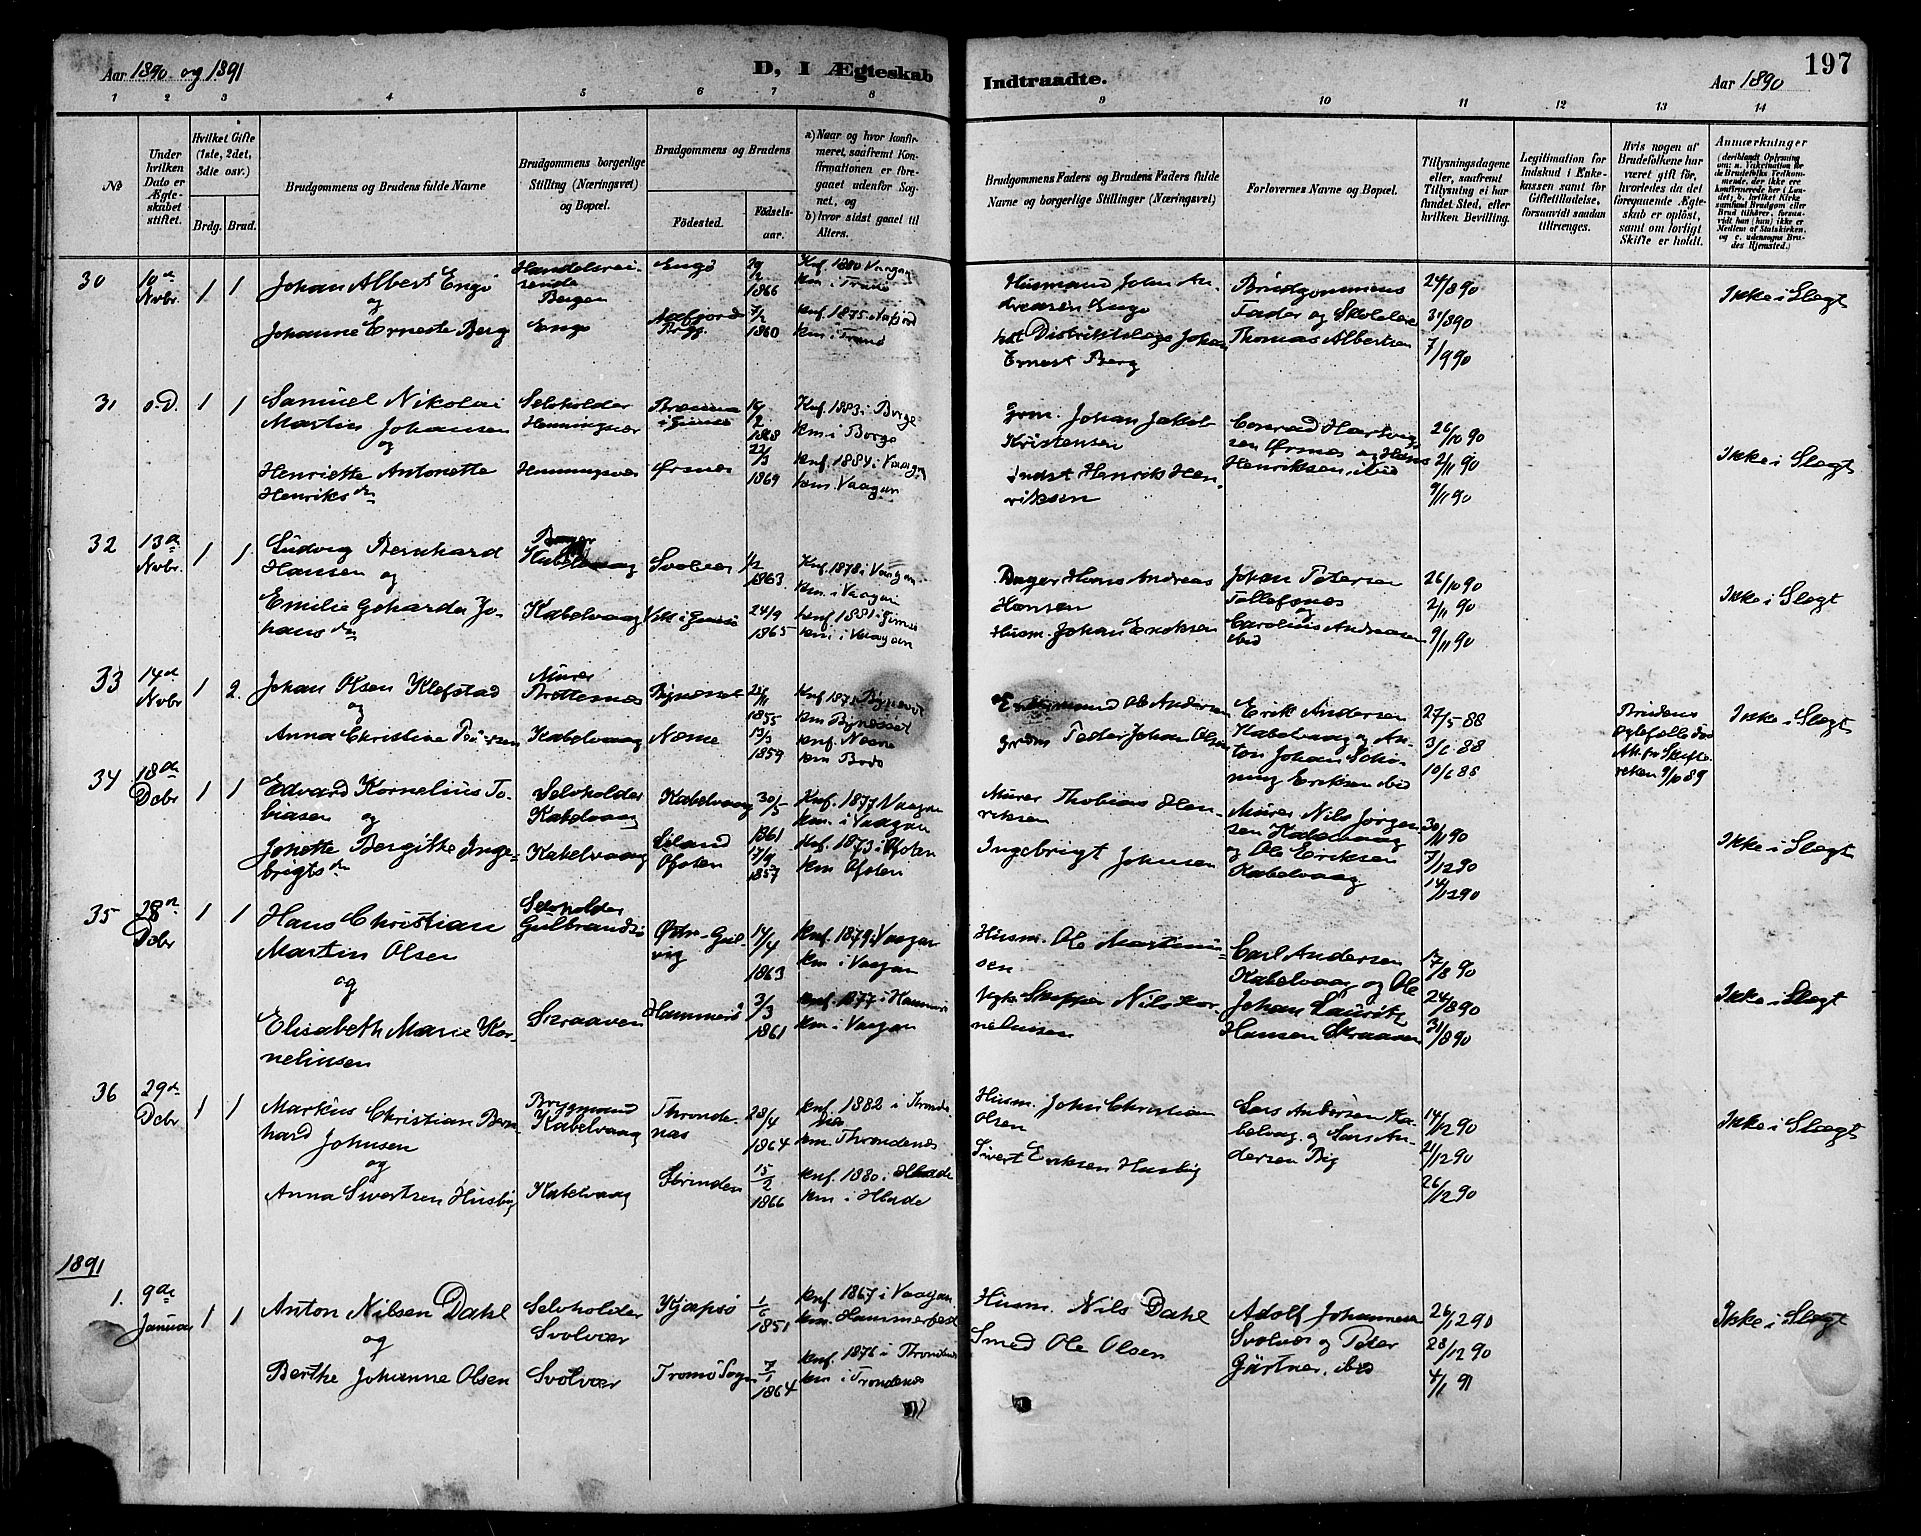 Aar 1890 og 1891
D, I Ægteskab Indtraadte.
Aar 1890
197
1 2 3 4 5 6 7 8 9 10 11 12 13 14
No
Under hvilken Dato er Ægteskabet stiftet.
Hvilket Gifte (1ste, 2det, 3die osv.)
Brdg. Brud.
Brudgommens og Brudens fulde Navne
Brudgommens borgerlige Stilling (Næringsvei) og Bopæl.
Brudgommens og Brudens
Födested.
Födselsaar.
a) Naar og hvor konfirmeret, saafremt Konfirmationen er foregaaet udenfor Sognet, og
b) hvor sidst gaaet til Alters.
Brudgommens Faders og Brudens Faders fulde Navne og borgerlige Stillinger (Næringsvei)
Forlovernes Navne og Bopæl.
Tillysningsdagene eller, saafremt Tillysning ei har fundet Sted, efter hvilken Bevilling.
Legitimation for Indskud i Enkekassen samt for Giftetilladelse, forsaavidt saadan tiltrænges.
Hvis nogen af Brudefolkene har været gift för, hvorledes da det foregaaende Ægteskab er oplöst, samt om lovligt Skifte er holdt.
Anmærkninger
30 10de Nvbr. 1 1
Johan Albert Engö
og
Johanne Erneste Berg
Handelsreisende
Bergen
Engö
Engö
1866
7/2
1860
Knf. 1880 Vaagan
Knf. 1875
Husmand John Andreasen Engö
Distriktslæge Johan
Ernest Berg
Brudgommens
Fader og
Thomas Albertsen
24/8 90
31/8 90
7/9 90
Ikke i Slægt
31 o.D. 1 1
Samuel Nikolai
Martin Johansen
og
Henriette Antonette
Henriksdn
Selvholder
Henningsvær
Henningsvær
Ørsnes
1868
22/3
1869
Knf. 1883 i Borge
km. i Borge
knf. 1884 i Vaagan
km. Vaagan
Grm. Johan Jakob
Kristensen
Indst Henrik Henriksen
Conrad Hartvigsen Ørsnes og Hans
Henriksen, ibid
26/10 90
2/11 90
9/11 90
Ikke i Slægt
32 13de Nvbr. 1 1
Ludvig Bernhard
Hansen og
Emilie Geharda Johansdn
Bager
Kabelvaag
Kabelvaag
Svolvær
1/2
1863
24/9
1865
Knf. 1878 i Vaagan
km. i Vaagan
knf. 1881 i Gimsö
km i Vaagan
Bager Hans Andreas
Hansen
Husm. Johan Eriksen
Johan Petersen
og
Carolius Andreasen
ibid
26/10 90
2/11 90
9/11 90
Ikke i Slægt
33 14de Nvbr 1 2.
Johan Olsen Klefstad
og
Anna Christine
Murer
Brettesnæs
Kabelvaag
Bynesset
Næsne
1855
13/3
1859
Knf. 1871 Bynesset
km Bynesset
knf. Nesne
km Bodö
Ole Andersen
Peder Johan Olsen
Erik Andersen
Kabelvaag og Anton Johan Schöning Eriksen ibid
27/5 88
3/6 88
10/6 88
Brudens
9/10 89
Ikke i Slægt
34 18de Dcbr 1 1
Edvard Kornelius Tobiasen
og
Jonette Bergitte Ingebrigtsdn
Selvholder
Kabelvaag
Kabelvaag
Kabelvaag
Ofoten
30/5
1861
17/9
1857
Knf. 1877 Vaagan
km. i Vaagan
Knf. 1873 i Ofoten
km Ofoten
Murer Thobias Henriksen
Ingebrigt Johnsen
Murer Nils Jörgensen Kabelvaag
og Ole Eriksen
Kabelvaag
30/11 90
7/12 90
14/12 90
Ikke i Slægt
35 28de Dcbr 1 1
Hans Christian
Martin Olsen
og
Elisabeth Marie Kornelinsen
Selvholder
Skraaven
Hammerö
14/4
1863
3/3
1861
knf. 1879 Vaagan
km. i Vaagan
knf. 1877 i Hammerö
km i Vaagan
Husm. Ole Martiniussen
Skipper Nils Kornelinsen
Carl Andersen
Kabelvaag og Ole
Johan Lauritz
Hansen Skraaven
17/8 90
24/8 90
31/8 90
Ikke i Slægt
36 29de Dcbr 1 1
Markus Christian Bernhard Johnsen
og
Anna Sivertsen Husby
Brygmand
Kabelvaag
Kabelvaag
Throndenas
Strinden
28/4
1864
15/2
1866
knf. 1882 i Throndenes
km. Throndenes
knf. 1880 i Hlade
km i Hlade
Husm. John Christian
Olsen
Sivert Eriksen Husby
Lars Andersen Kabelvaag og Lars Andersen
14/12 90
21/12 90
26/12 90
Ikke i Slægt
1891
1. 9de Januar 1 1
Anton Nilsen Dahl
og
Berthe Johanne Olsen
Selvholder
Svolvær
Svolvær
Kjæpsö
Tromö Sogn
1/6
1851
7/1
1864
knf. 1867 i Vaagan
km. Hammerfest
knf. 1876 i Throndenes
km. i Trondenes
Husm. Nils Dahl
Smed Ole Olsen
Adolf Johannesen
Svolvær og Peter
Gjärtner, ibid
26/12 90
28/12 90
4/1 91
Ikke i Slægt